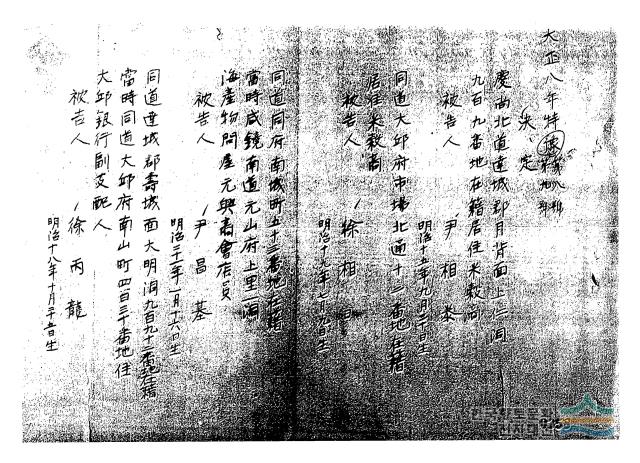 大正八年特豫第八、九号
決定
慶尚北道達城郡月背面上仁洞
九百九番地在籍居住米穀商
被告人 尹相泰
明治十五年九月二十日生
同道大邱府市場北通十二番地在籍
居住米穀商
被告人 徐相
明治十 年七月 日生
同道同府南城町五十三番地在籍
當時咸鏡南道元山府上里一洞
海産物問屋元興商會店員
被告人 尹昌基
明治三十一年一月十六日生
同道達城郡壽城面大明洞九百九十二番地在籍
當時同道大邱府南山町四百三十番地住
大邱銀行副支配人
被告人 徐丙龍
明治十八年十月二十五日生
한국향토문화
전자대전